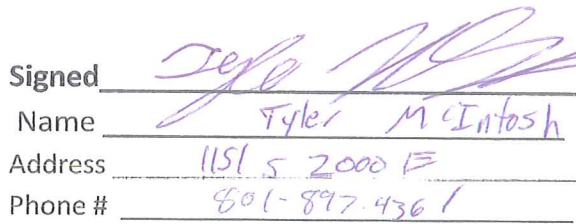 Signed
Name Tyler McIntosh
Address 1151 S 2000 E
Phone # 801-897-4361